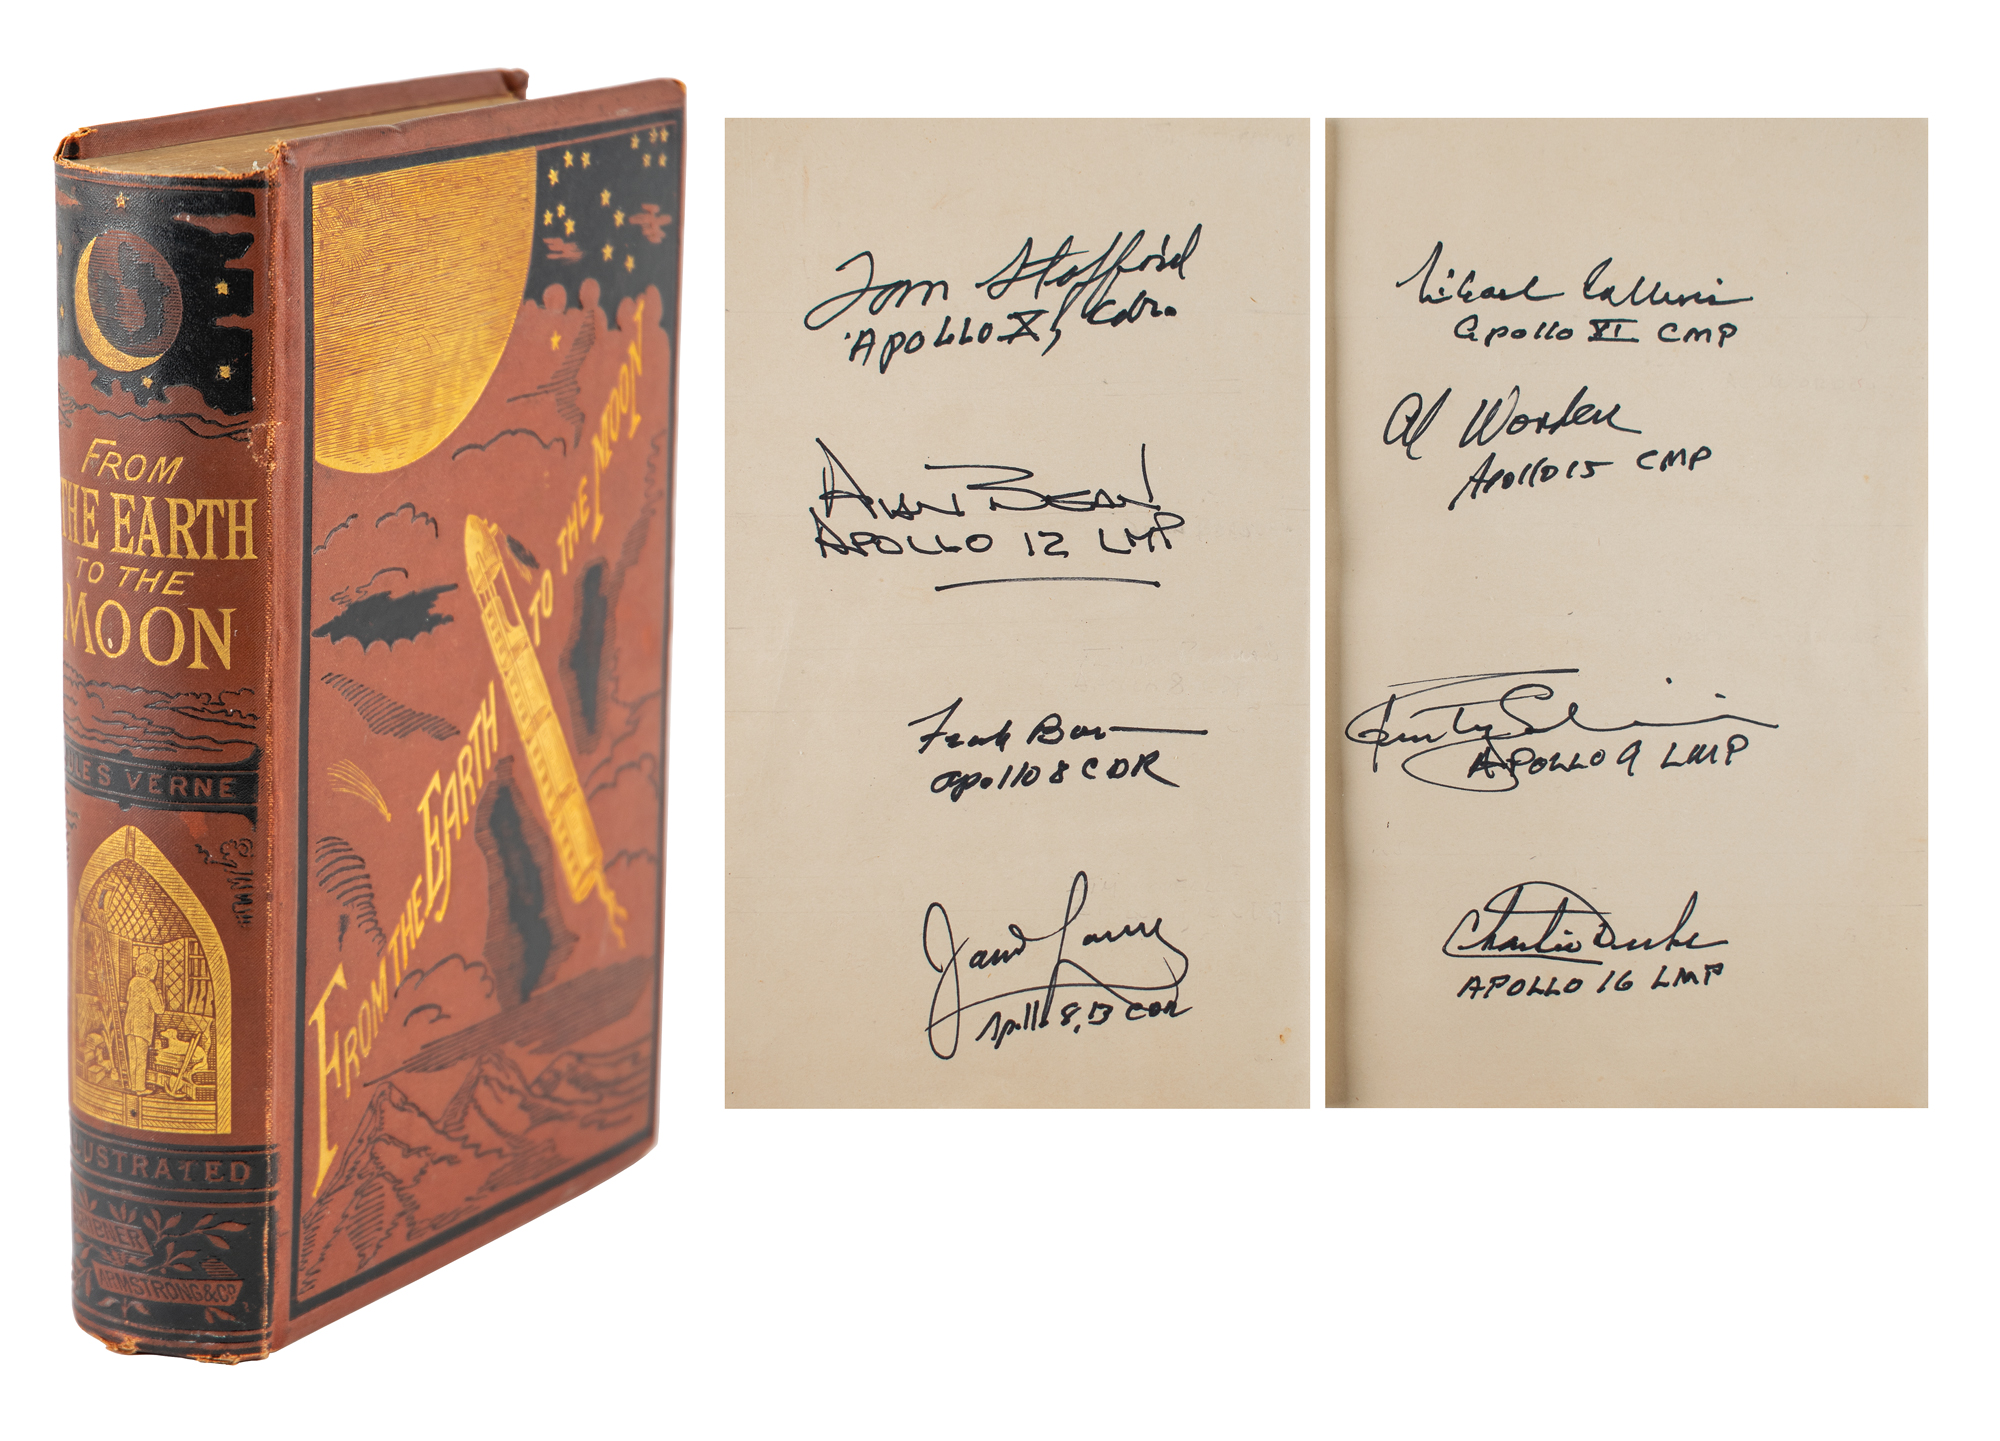 FROM
THE EARTH
TO THE
MOON
JULES VERNE
ILLUSTRATED
SCRIBNER
ARMSTRONG & Co
FROM THE EARTH TO THE MOON
Tom Stafford
Apollo X, Cdr.
Alan Bean
APOLLO 12 LMP
Frank Borman
Apollo 8 CDR
James Lovell
Apollo 8, 13 CDR
Michael Collins
Apollo XI CMP
Al Worden
Apollo 15 CMP
Rusty Schweickart
APOLLO 9 LMP
Charlie Duke
APOLLO 16 LMP